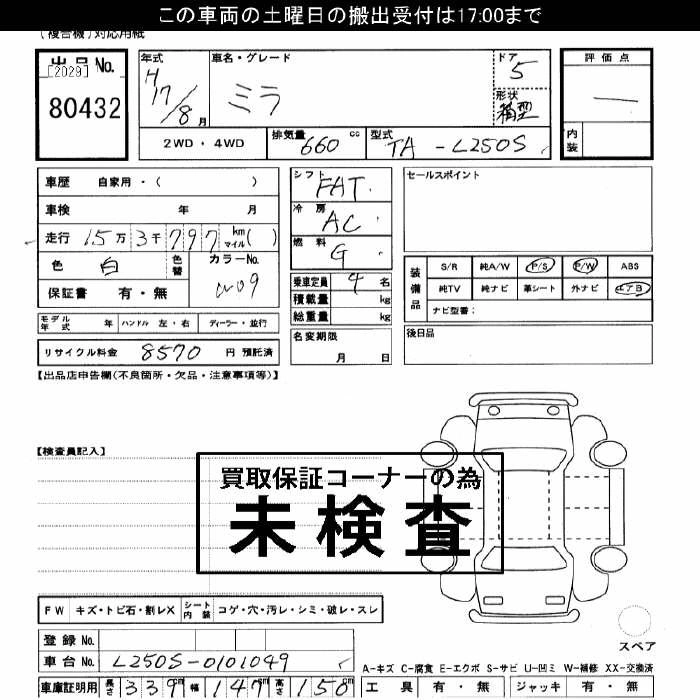 この車両の土曜日の搬出受付は17:00まで
(複合機)対応用紙
出品 No.
[2029]
80432
年式 H17/8 月
車名・グレード
ミラ
ドア 5
形状 箱型
評価点
内装
2WD・4WD 排気量 660 cc 型式 TA - L250S
車歴 自家用・( )
車検 年 月
走行 15万 3千 797 km マイル ( )
色 白 色替 カラーNo. W09
保証書 有・無
モデル年式 年 ハンドル 左・右 ディーラー・並行
リサイクル料金 8570 円 預託済
シフト FAT
冷房 AC
燃料 G
乗車定員 4 名
積載量 kg
総重量 kg
名変期限
月 日
セールスポイント
装備品
S/R 純A/W P/S P/W ABS
純TV 純ナビ 革シート 外ナビ エアB
ナビ型番:
後日品
【出品店申告欄(不良箇所・欠品・注意事項等)】
【検査員記入】
買取保証コーナーの為
未検査
FW キズ・トビ石・割レX シート内装 コゲ・穴・汚レ・シミ・破レ・スレ
スペア
登録 No.
車台 No. L250S-0101049
A-キズ C-腐食 E-エクボ S-サビ U-凹ミ W-補修 XX-交換済
車庫証明用 長さ 339 cm 幅 147 cm 高さ 150 cm
工具 有・無 ジャッキ 有・無